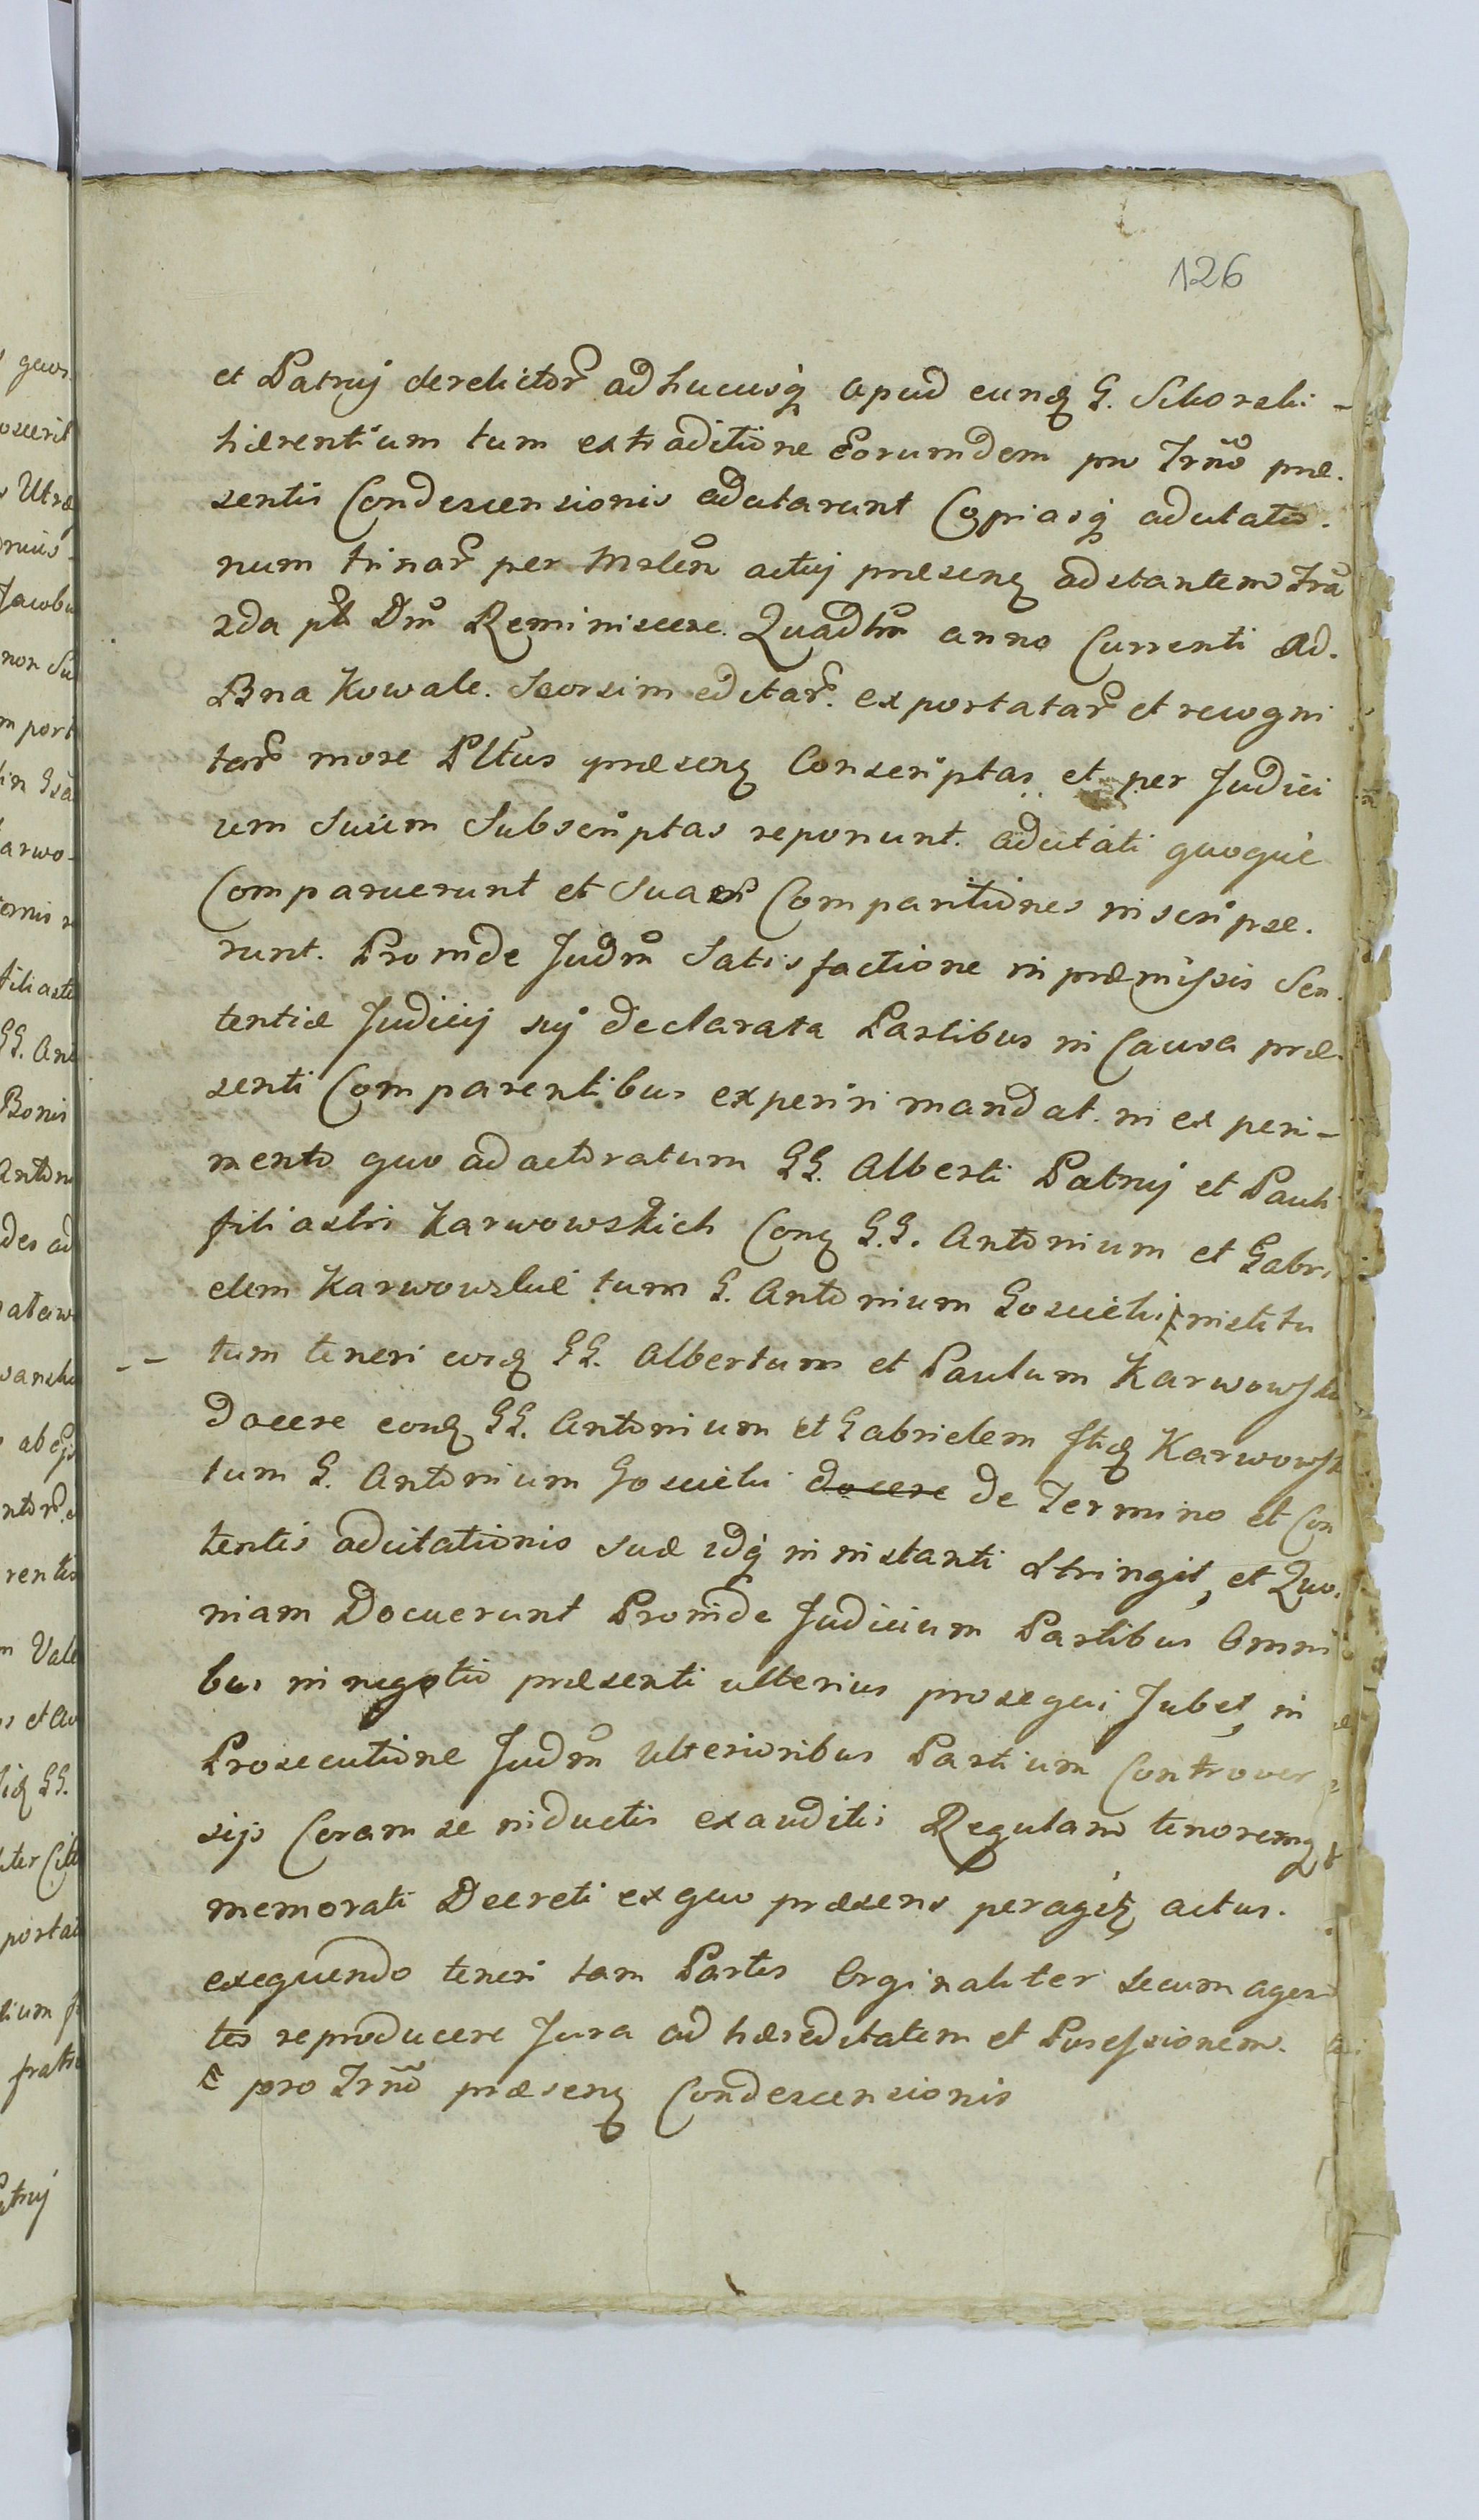 126
et Patruj derelictor adhucusq apud eundq G. Sikorski -
hærentium tum extraditione Eorumdem pro Trno præ.
sentis Condescensionis adcitarunt Copiasq adcitatio.
num trinar per Mrlem actuj præsenq adstantem Fra
2da pt Dm Reminiscere. Quadlm anno Currenti ad.
Bna Kowale. Seorsim editar. exportatar et recogni
tar more Pltus præsenq Conscriptas et per Judici
um Suum Subscriptas reponunt. adcitati quoque
Comparuerunt et Suas Comparitiones inscripse.
runt. Proinde Judm Satisfactione in præmissis Sen.
tentiæ Judicij suj declarata Partibus in Causa præ.
senti Comparentibus experiri mandat. in experi-
mento quo ad actoratum GG. Alberti Patruj et Pauli
filiastri Karwowskich Conq G.G. Antonium et Gabri
elem Karwowskie tum G. Antonium Goscicki institu
-- tum teneri eosq GG. Albertum et Paulum Karwowski
Docere conq GG. Antonium et Gabrielem fliq Karwowsk
tum G. Antonium Goscicki docere de Termino et Con
tentis adcitationis suæ idq in instanti stringit, et Quo.
niam Docuerunt Proinde Judicium Partibus Omni
bus in negotio præsenti ulterius prosequi Jubet, in
Prosecutione Judm Ulterioribus Partium Controver
sijs Coram se inductis exauditis Regulam tenoremq
memorati Decreti ex quo præsens peragitq actus.
exequendo teneri tam Partes Orginaliter secum agen
tes reproducere Jura ad hæreditatem et Possessionem.
pro Trno præsenq Condescensionis